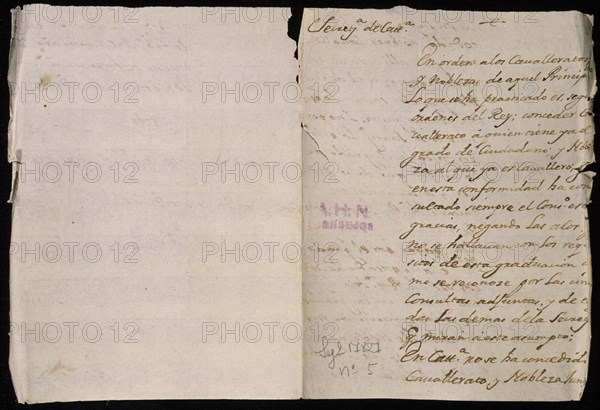 Secrey.ª de Catt.ª
En orden a los Cavalleratos
y Nobleza, de aquel Princip
lo que se ha practicado es, segu
ordenes del Rey; conceder Ca
vallerato á quien tiene ya el
grado de Ciudadano; y Noble
za al que ya es Cavallero; y
en esta conformidad ha con
sultado siempre el Cons.º es
gracias, negando las a los
no se hallavan con los requ
sitos de esta graduación
mo se reconoze por las cin
Consultas adjuntas, y de
dos las demas de la Secrey
q miran a este asumpto;
En Catt.ª no se ha concedid
Cavallerato, y Nobleza jun
nº 5
PHOTO 12